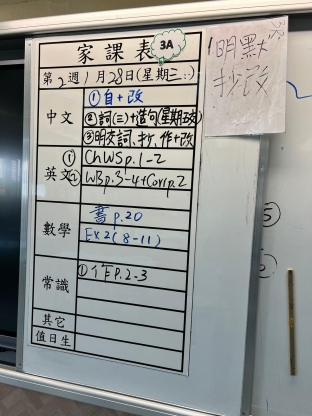 家課表
3A
第2週1月28日(星期三)
中文
①自+改
②詞(三)+造句(星期五交)
③明交詞、抄、作+改
英文
① Ch WS p.1-2
② WB p.3-4+Corr p.2
數學
書 p.20
Ex 2 (8-11)
常識
①作 P.2-3
其它
值日生
明默
抄改
⑤